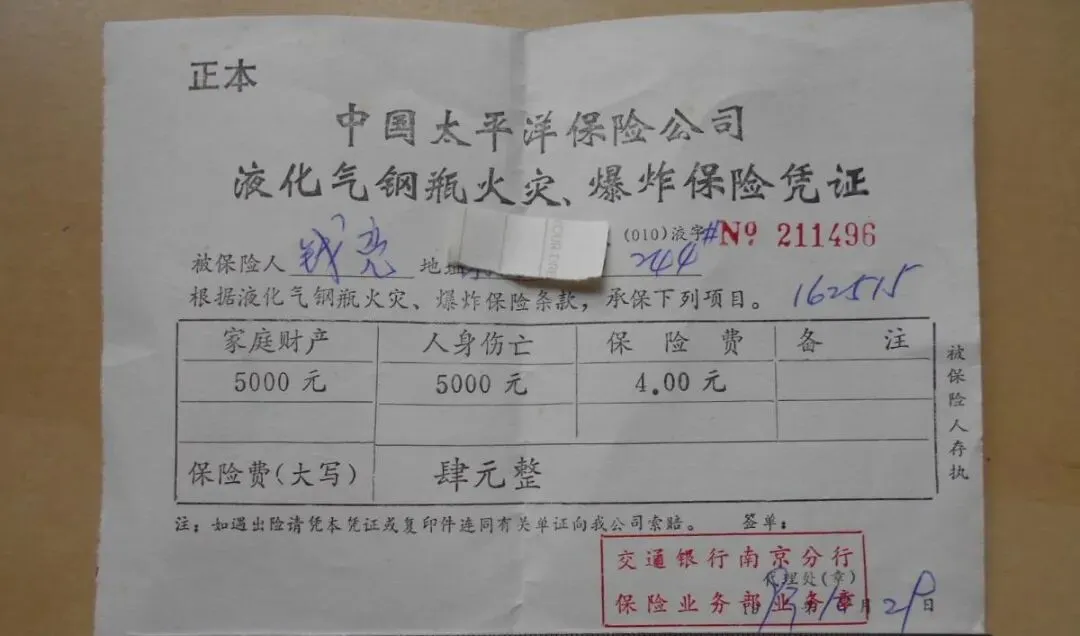 正本
中国太平洋保险公司
液化气钢瓶火灾、爆炸保险凭证
(010)液字#№ 211496
被保险人 钱亮 地址 244
根据液化气钢瓶火灾、爆炸保险条款，承保下列项目。 162515
家庭财产 人身伤亡 保险费 备注
5000元 5000元 4.00元
保险费(大写) 肆元整
被保险人存执
注：如遇出险请凭本凭证或复印件连同有关单证向我公司索赔。 签单：
交通银行南京分行
代理处(章)
保险业务部业务章
月 29 日